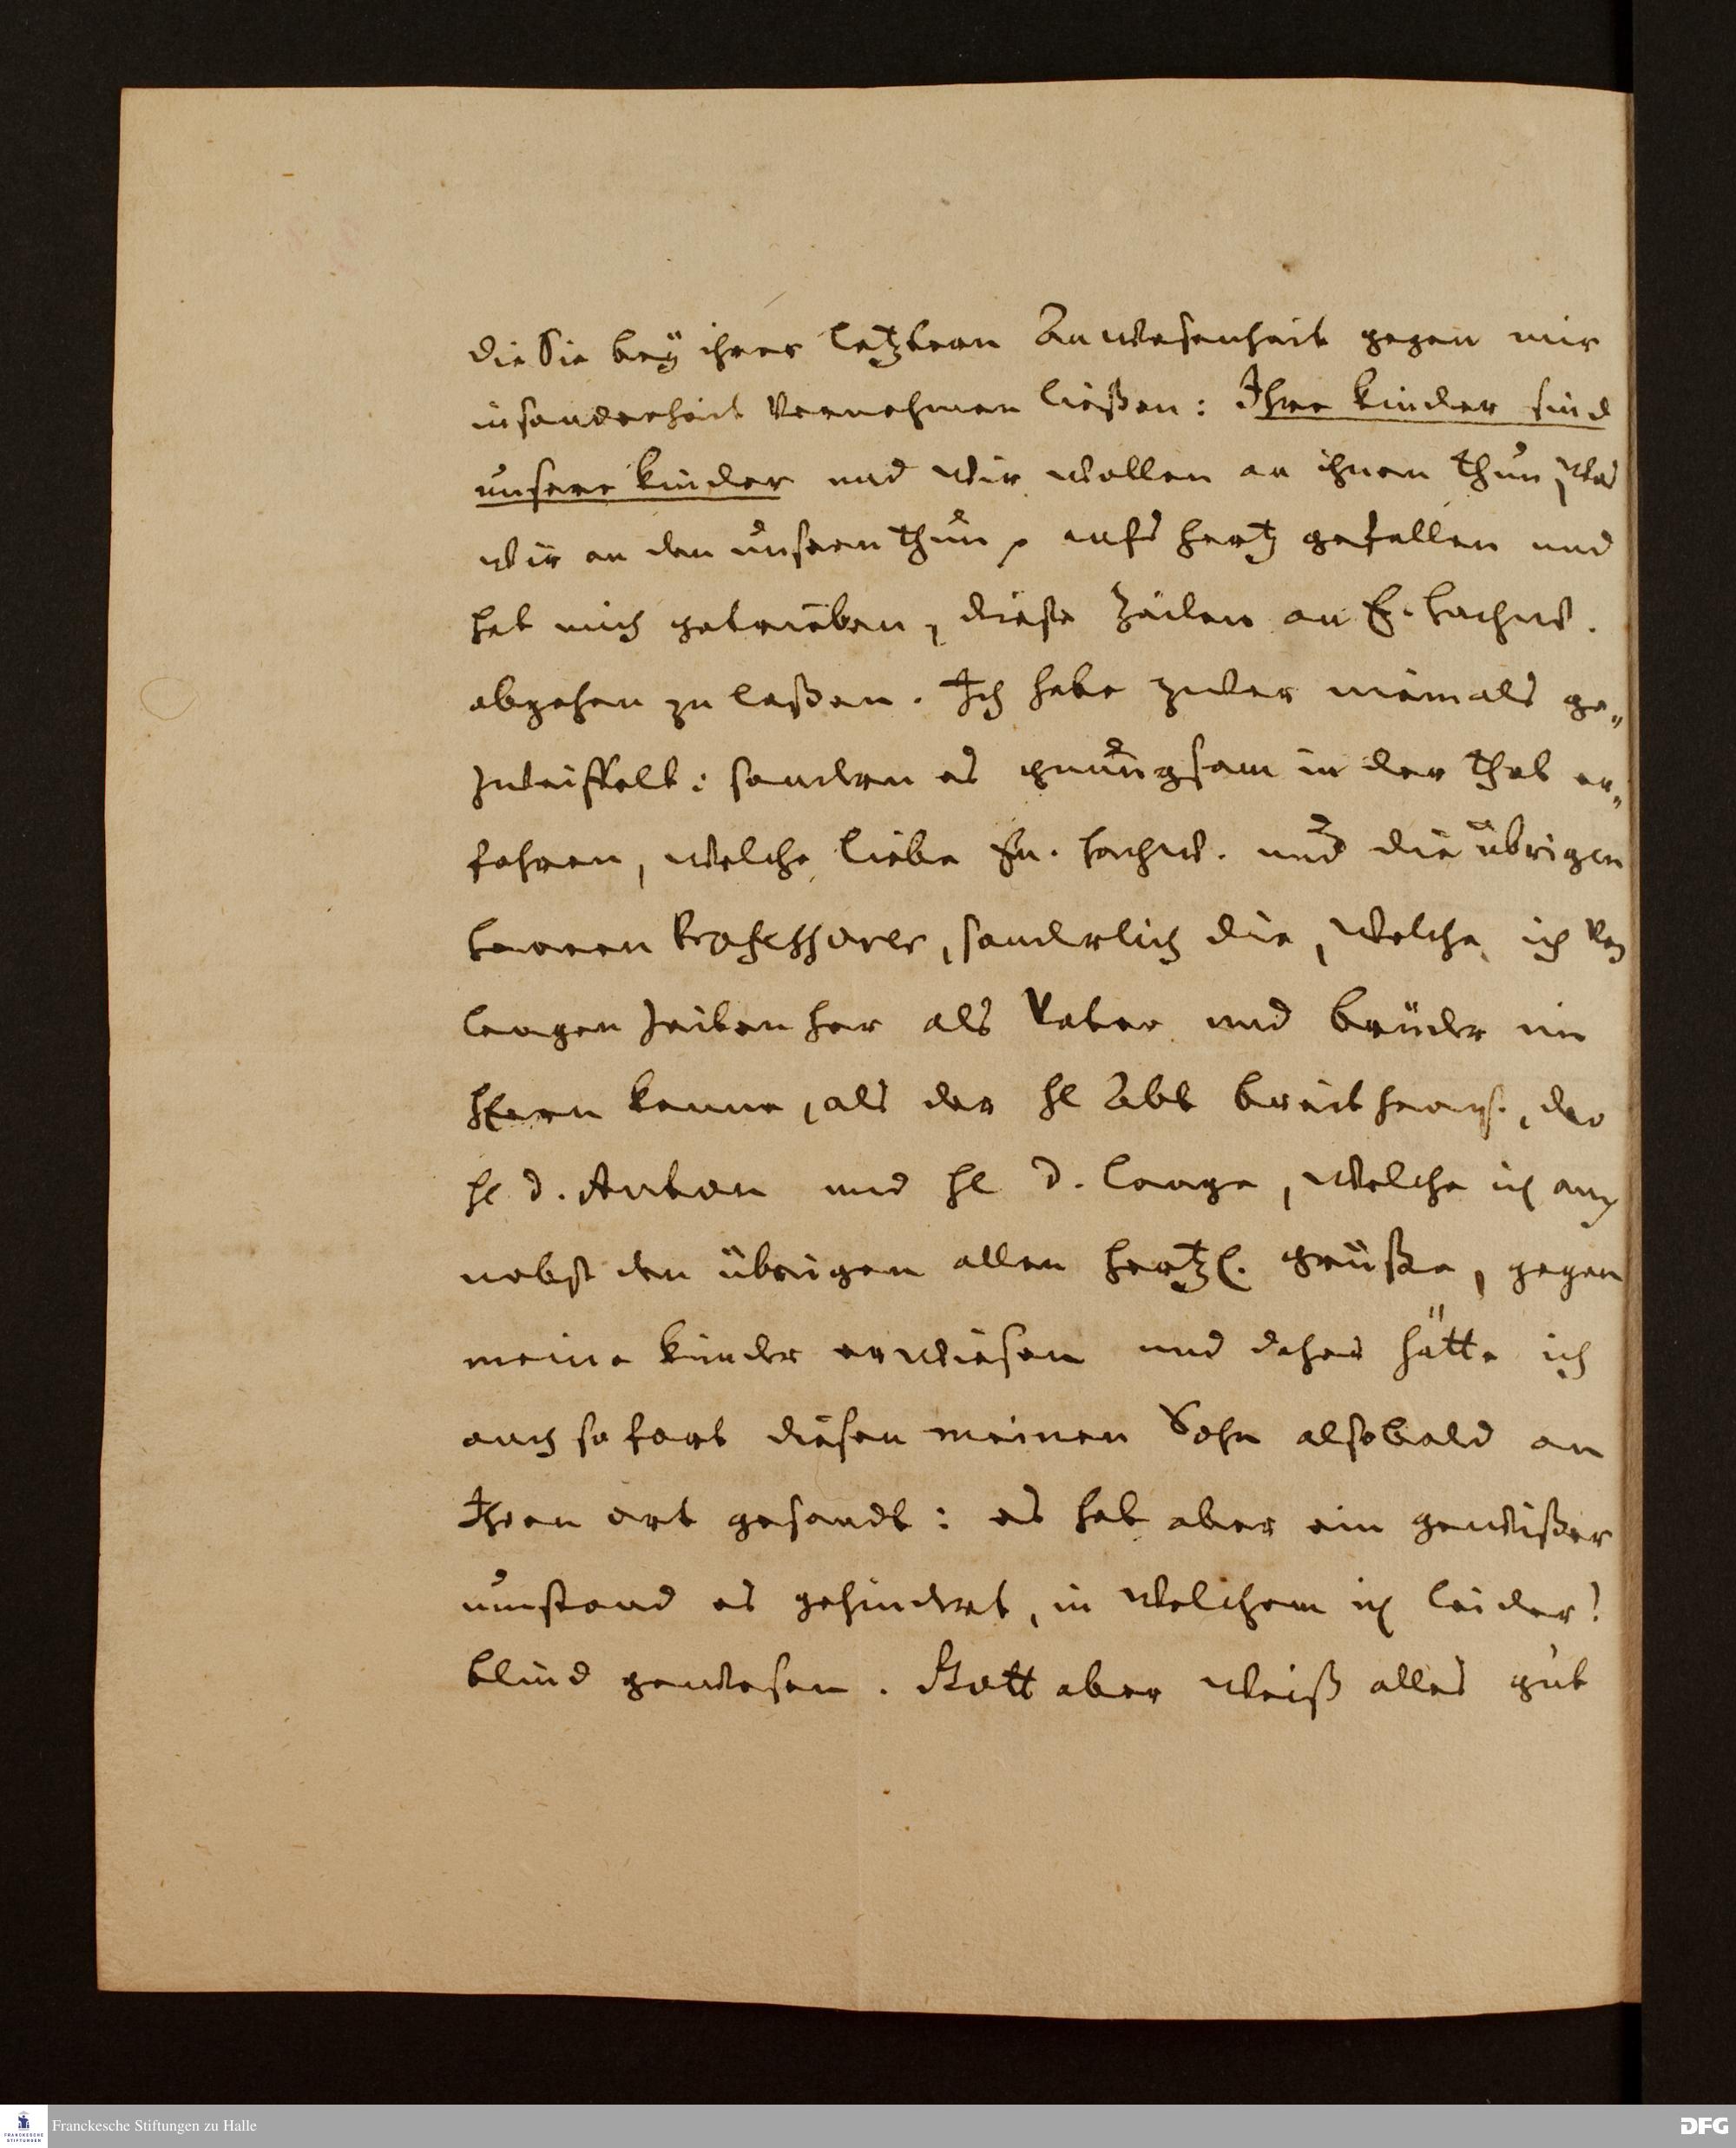 die Sie bey ihrer letztern Anwesenheit gegen mir
insonderheit vernehmen ließen: Ihre kinder sind
unsere kinder und wir wollen an ihnen thun, was
wir an den unsern thun, aufs hertz gefallen und
hat mich getrieben, diese Zeilen an E. Hochw.
abgehen zu laßen. Ich habe zwar niemals ge„
zweiffelt: sondern es gnungsam in der that er„
fahren, welche liebe Ew. Hochw. und die übrigen
herren Professores, sonderlich die, welche ich von
langen zeiten her als Väter und brüder im
HErrn kenne, als der Hl Abt breithaupt, der
Hl D. Anton und Hl D. Lange, welche ich auch
nebst den übrigen allen hertzl. grüße, gegen
meine kinder erwiesen und daher hätte ich
auch sofort diesen meinen Sohn alsobald an
Ihren ort gesandt: es hat aber ein gewißer
umstand es gehindert, in welchem ich leider!
blind gewesen. Gott aber weiß alles gut
Franckesche Stiftungen zu Halle
FRANCKESCHE STIFTUNGEN
DFG